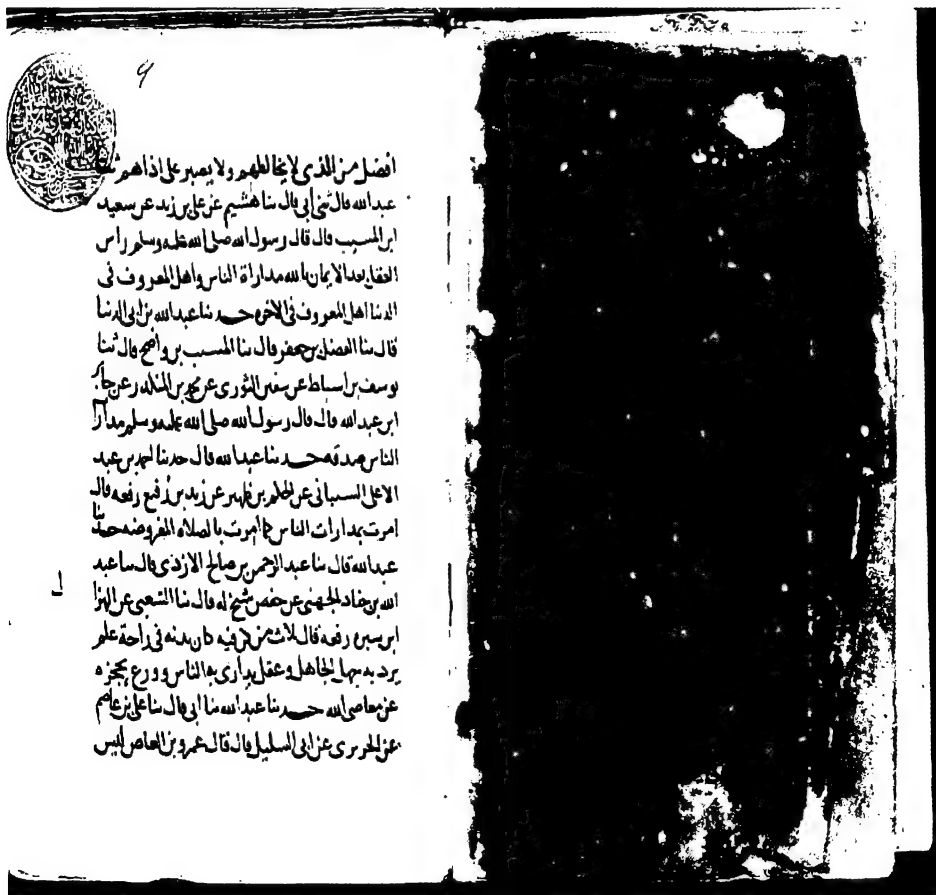 افضل من الذى لا يخالطهم ولا يصبر على اذاهم
عبد الله قال ثنى أبى قال ثنا هشيم عن على بن زيد عن سعيد
ابن المسيب قال قال رسول الله صلى الله عليه وسلم راس
العقل بعد الايمان بالله مداراة الناس واهل المعروف فى
الدنيا اهل المعروف فى الاخره حدثنا عبد الله بن ابى الدنيا
قال ثنا الفضل بن جعفر قال ثنا المسيب بن واضح قال ثنا
يوسف بن اسباط عن سفين الثورى عن محمد بن المنكدر عن جابر
ابن عبد الله قال قال رسول الله صلى الله عليه وسلم مدارا
الناس صدقه حدثنا عبد الله قال حدثنا احمد بن عبد
الاعلى الشيبانى عن الحكم بن ظهير عن زيد بن رفيع رفعه قال
امرت بمدارات الناس كما امرت بالصلاه المفروضه حدثنا
عبد الله قال ثنا عبد الرحمن بن صالح الازدى قال ثنا عبد
الله بن الجهنى عن شيخ له قال ثنا الشعبى عن النزا
ابن سبره رفعه قال ثلاث من كن فيه كان بدنه فى راحة علم
يرد به جهل الجاهل وعقل يدارى به الناس وورع يحجزه
عن معاصى الله حدثنا عبد الله ثنا ابى قال ثنا على بن عاصم
عن الجريرى عن ابى السليل قال قال عمرو بن العاص ليس